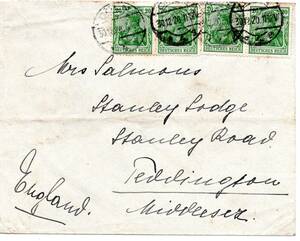 30.12.20.11-12V
DEUTSCHES REICH DEUTSCHES REICH DEUTSCHES REICH DEUTSCHES REICH
Mrs Salmons
Stanley Lodge
Stanley Road
Teddington
England. Middlesex.